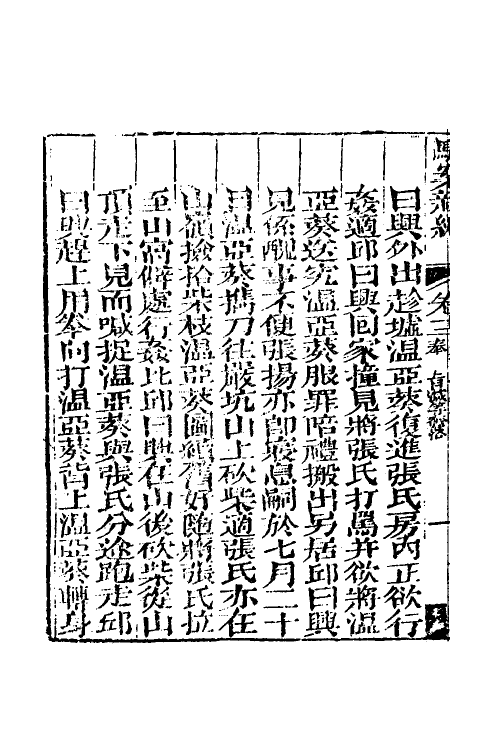 駁案新編 卷三奏
曰興外出趁墟溫亞葵復進張氏房內正欲行
姦適邱曰興回家撞見將張氏打罵并欲將溫
亞葵送究溫亞葵服罪賠禮搬出另居邱曰興
見係醜事不便張揚亦卽寢息嗣於七月二十
日溫亞葵攜刀往嚴坑山上砍柴適張氏亦在
山嶺撿拾柴枝溫亞葵圖續舊好隨將張氏拉
至山窩僻處行姦比邱曰興在山後砍柴從山
頂走下見而喊捉溫亞葵與張氏分途跑走邱
曰興趕上用拳向打溫亞葵背上溫亞葵轉身